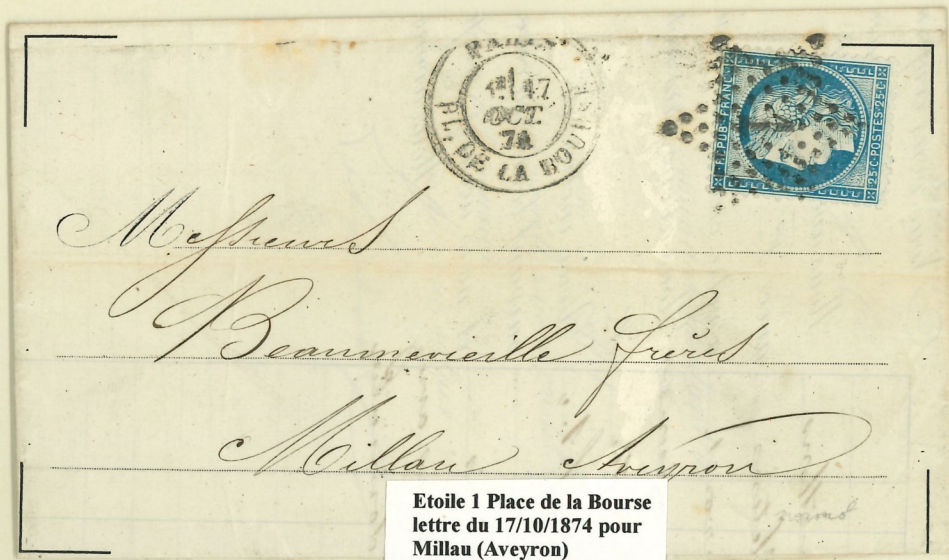 PARIS
17
OCT.
74
PL. DE LA BOURSE
REPUB. FRANC.
25·C·POSTES·25·C
1
Messieurs
Beaumevieille frères
Millau Aveyron
Etoile 1 Place de la Bourse
lettre du 17/10/1874 pour
Millau (Aveyron)